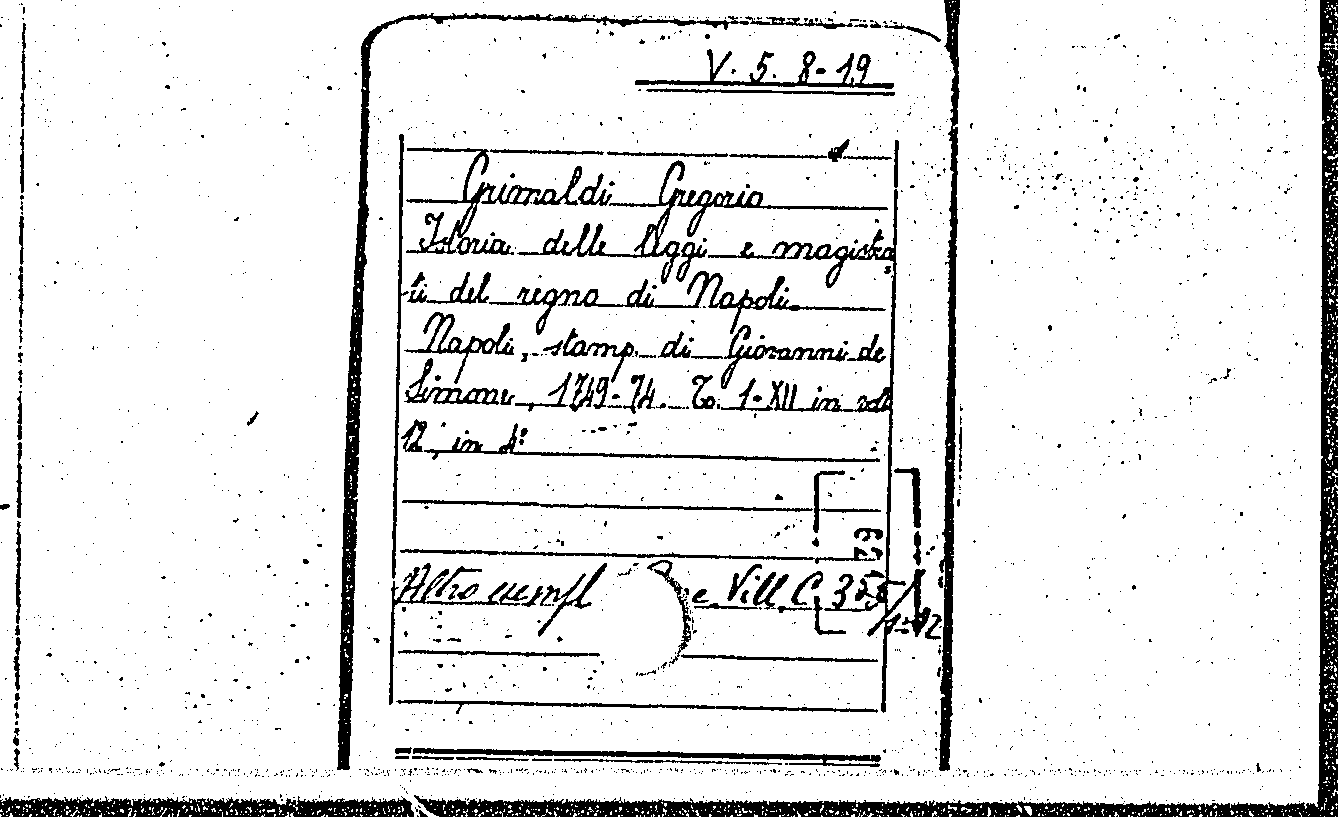 V. 5. 8-19
Grimaldi Gregorio
Istoria delle leggi e magistra
ti del regno di Napoli.
Napoli, stamp. di Giovanni de
Simone, 1749-74. To. 1-XII in vol.
12, in 4°
Altro esempl e Vill. C. 355/
1-12